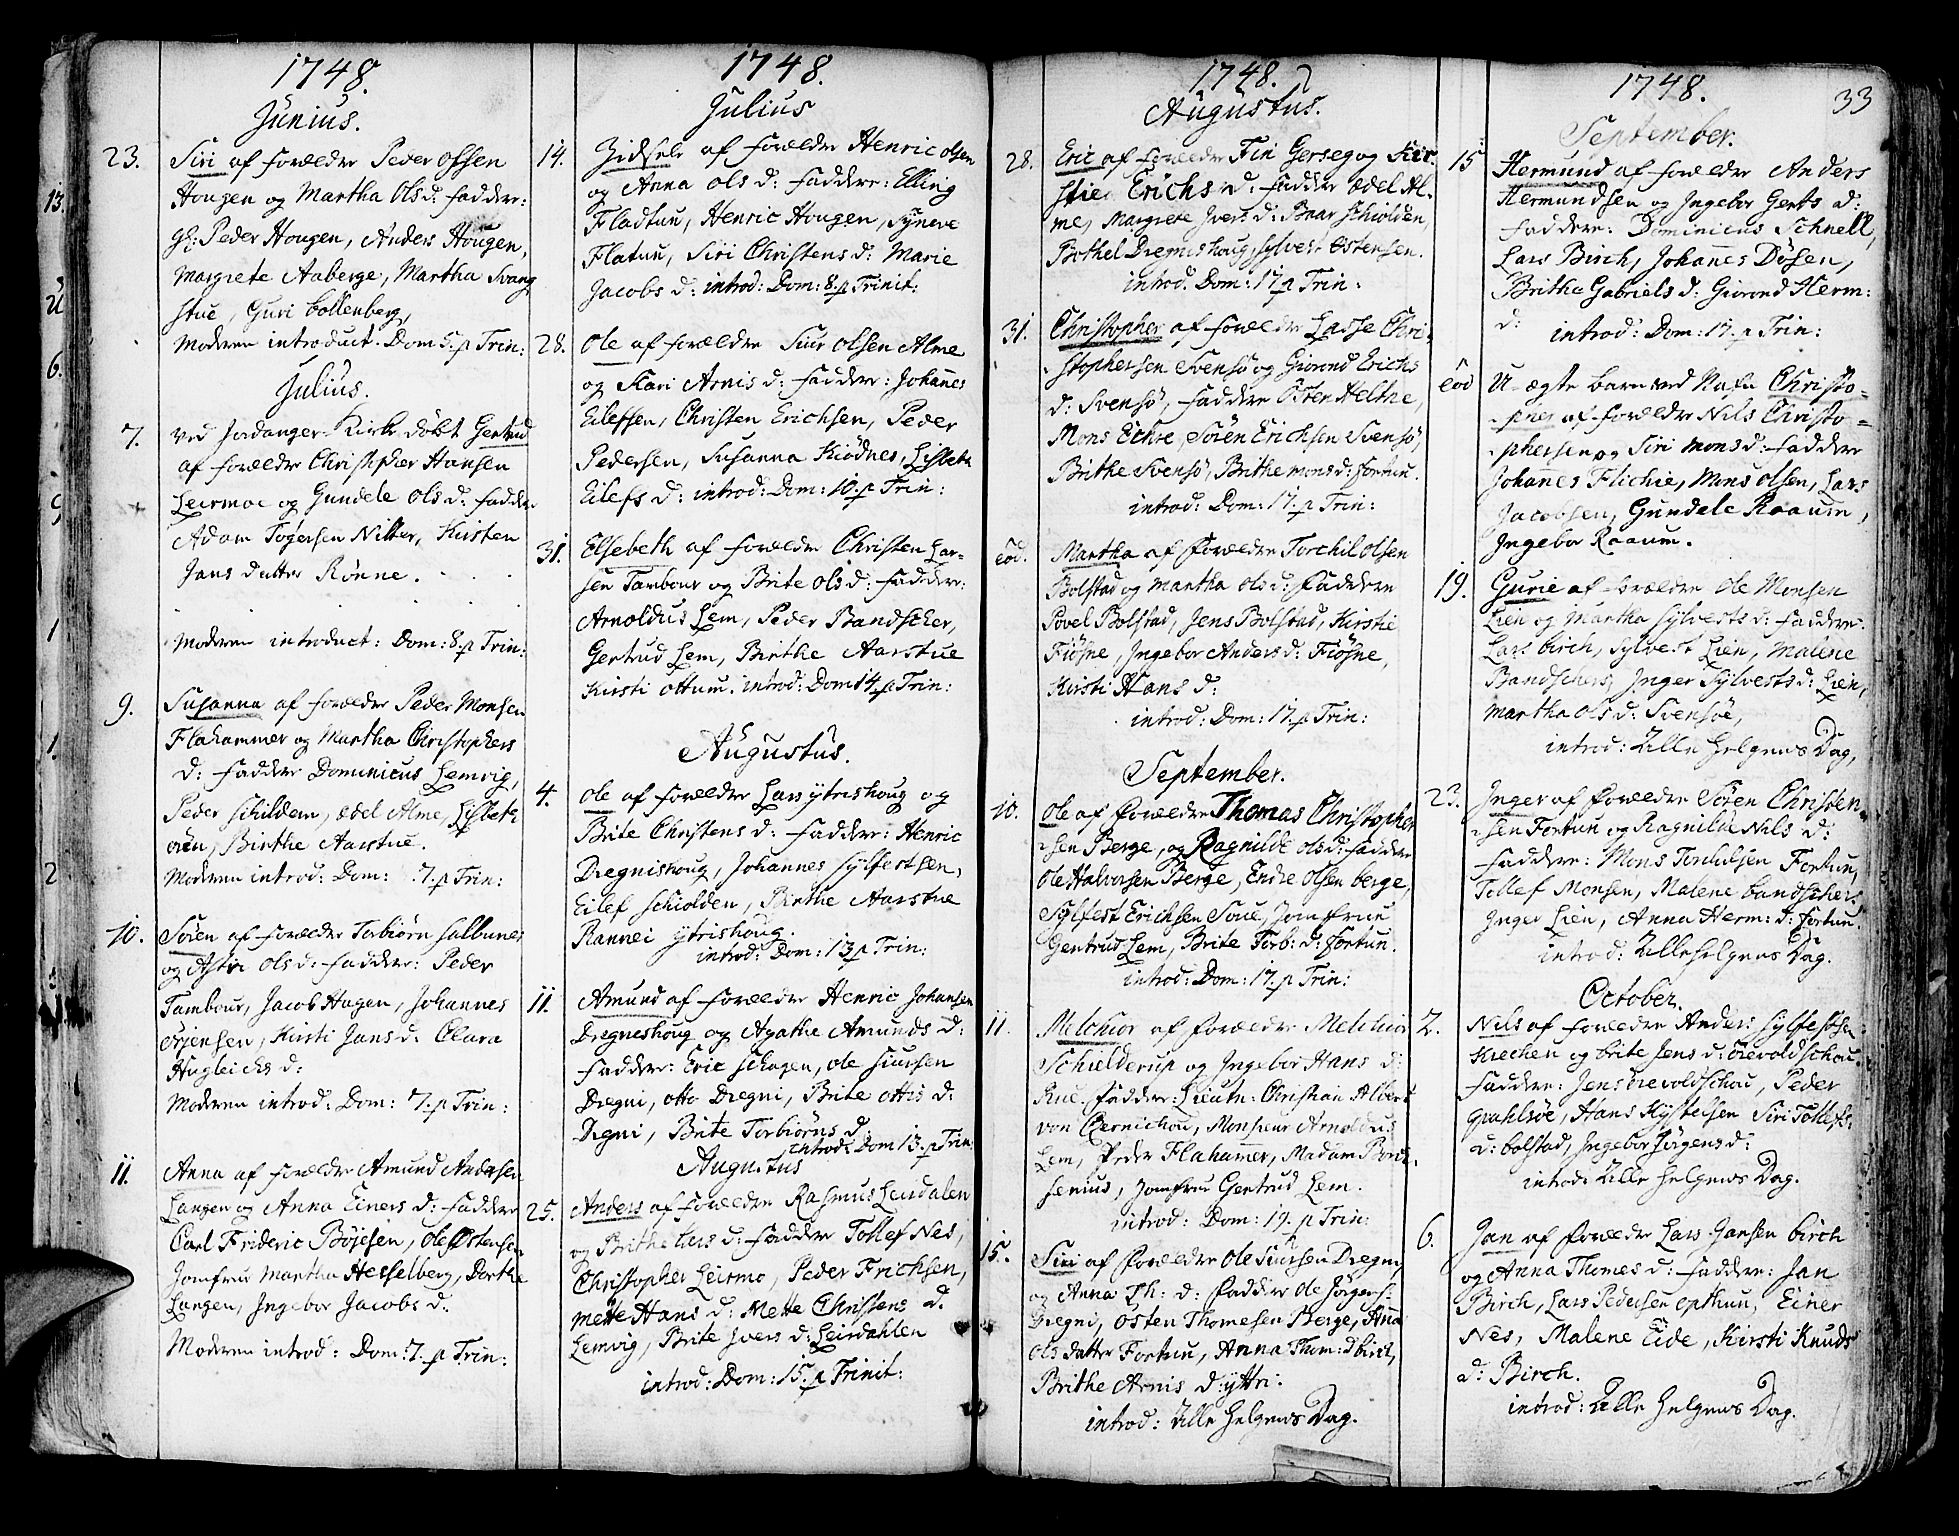 1748.
Junius.
23. Siri af forældre Peder Olssen
Hougen og Martha Ols d: faddere:
Peder Hougen, Anders Hougen,
Margrete Aaberge, Martha Svang
stue, Guri bollenberg,
Moderen introduct: Dom 5. p Trin:
Julius.
7. ved Jordanger Kirke döbt Gertrud
af forældre Christopher Hansen
Leirmoe og Gundele Ols d: fadder
Adam Togersen Nitter, Kirsten
Jans datter Rønne.
Moderen introduct: Dom: 8. p Trin:
9. Susanna af forældre Peder Monsen
Flahammer og Martha Christophers
d: faddere Dominicus Lemvig,
Peder Schilden, Ædel Alme, Lisbeth
Birthe Aarstue.
Moderen introd: Dom: 7. p Trin:
10. Sören af forældre Torbiörn
og Ols d: faddere: Peder
Tambour, Jacob Hagen, Johannes
Örjensen, Kirsti Jans d: Clara
Hugleicks d:
Moderen introd: Dom: 7. p Trin:
11. Anna af forældre Amund Andersen
Langen og Anna Einers d: faddere
Carl Frideric Böjesen, Ole Ostensen
Jomfrue Martha Hesselberg, Dorthe
Langen, Ingebor Jacobs d:
Moderen introd: Dom: 7. p Trin:
1748.
Julius
14. Zidsele af forældre Henric Olsen
og Anna Ols d: faddere: Elling
Fladtun, Henric Hougen, Syneve
Flatun, Siri Christens d: Marie
Jacobs d: introd: Dom: 8. p Trinit:
28. Ole af forældre Siur Olsen Alme
og Kari Arnis d: faddere: Johanes
Eileffsen, Christen Erichsen, Peder
Pedersen, Susanna Kiödnes, Lisbeth
Eilefs d: introd: Dom: 10. p Trin:
31. Elsebeth af forældre Christen Lar-
sen Tambour og Brite Ols d: faddere:
Arnoldus Lem, Peder Bandscher,
Gertrud Lem, Birthe Aarstue
Kirsti Ottum. introd: Dom 14. p Trin:
Augustus.
4. Ole af forældre Lars ytrishoug og
Brite Christens d: faddere: Henric
Dregnishoug, Johannes Sylfestsen,
Eilef Schiolden, Birthe Aarstue
Rannei ytrishoug.
introd: Dom: 13 p Trin:
11. Amund af forældre Henric Johansen
Dregneshoug og Agathe Amunds d:
faddere: Eric Schagen, Ole Siursen
Dregni, Otto Dregni, Brite Ottis d:
Dregni, Brite Torbiörns d:
introd: Dom 13. p Trin:
Augustus
25. Anders af forældre Rasmus Leirdalen
og Brithe Lars d: faddere Tollef Nes,
Christopher Leirmo, Peder Frichsen,
Mette Hans d: Mette Christens d:
Lemvig, Brite Ivers d: Leirdahlen
introd: Dom: 15. p Trinit:
1748.
Augustus.
28. Eric af forældre Fin Gerseg og Kir-
stie Erichs d: faddere Ædel Al-
me, Margrete Ivers d: Baar Schiolden,
Bothel Dregnishoug, Sylvest Ostensen.
introd. Dom: 17 p Trin:
31. Christopher af forældre Lasse Chri-
stophersen Svensö og Giörond Erichs
d: Svensö, faddere Osten Helthe,
Mons Eckre, Sören Erichsen Svensö,
Brithe Svensö, Brithe Mons d: Fortun.
introd: Dom: 17. p Trin:
eod. Martha af forældre Torchil Olsen
Bolstad og Martha Ols d: faddere
Povel Bolstad, Jens Bolstad, Kirstie
Fiösne, Ingebor Anders d: Fiösne,
Kirsti Hans d:
introd: Dom: 17. p Trin:
September.
10. Ole af forældre Thomas Christopher
-sen Berge, og Ragnilde Ols d: faddere
Ole Halvorsen Berge, Endre Olsen berge,
Sylfest Erichsen Soue, Jomfrue
Gertrud Lem, Brite Torb: d: Fortun.
introd: Dom: 17. p Trin:
11. Melchior af forældre Melchior
Schielderup og Ingebor Hans d:
Rue. faddere: Lieutn: Christian Albert
von Cernichou, Monsieur Arnoldus
Lem, Peder Flahamer, Madam
senius, Jomfru Gertrud Lem.
introd: Dom: 19. p Trin:
15. Siri af forældre Ole Siursen Dregni
og Anna Th: d: faddere Ole Jörgers:
Dregni, Osten Thomesen Berge, Anna
Ols datter Fortun, Anna Thom: d birch,
Brithe Arnis d: yttri.
introd: Alle helgens Dag.
1748.
33
September.
15 Hermund af forældre Anders
Hermundsen og Ingebor Gerts d:
faddere: Dominicus Schnell,
Lars Birch, Johanes Dösen,
Britha Gabriels d: Giorond Herm:
d: introd: Dom: 17. p Trin:
eod U-ægte barn ved Nafn Christo-
pher af forældre Nils Christo-
phersen og Siri Mons d: faddere
Johanes Flichie, Mons Olsen, Lars
Jacobsen, Gundele Raaum,
Ingebor Raaum.
19. Gurie af forældre Ole Monsen
Lien og Martha Sylvests d: faddere:
Lars birch, Sylvest Lien, Malene
Bandschers, Inger Sylvests d: Lien,
Martha Ols d: Svensöe,
introd: Alle helgens Dag,
23. Inger af forældre Sören Christen-
-sen Fortun og Ragnilde Nils d:
faddere: Mons Fortun,
Tollef Monsen, Malene bandschers
Inger Lien, Anna Herm: d: Fortun.
introd: Alle helgens Dag.
October.
2. Nils af forældre Anders Sylfestsen
Krechen og brite Jens d:
faddere: Jens Peder
Qvahlsöe, Hans Kystelsen Siri Tollefs
d: bolstad, Ingebor Jörgens d:
introd: Alle helgens Dag.
6. Jan af forældre Lars Jansen birch
og Anna Thomes d: faddere: Jan
Birch, Lars Pedersen Opthun, Einer
Nes, Malene Eide, Kirsti Knuds
d: Birch.
introd: Alle helgens Dag.